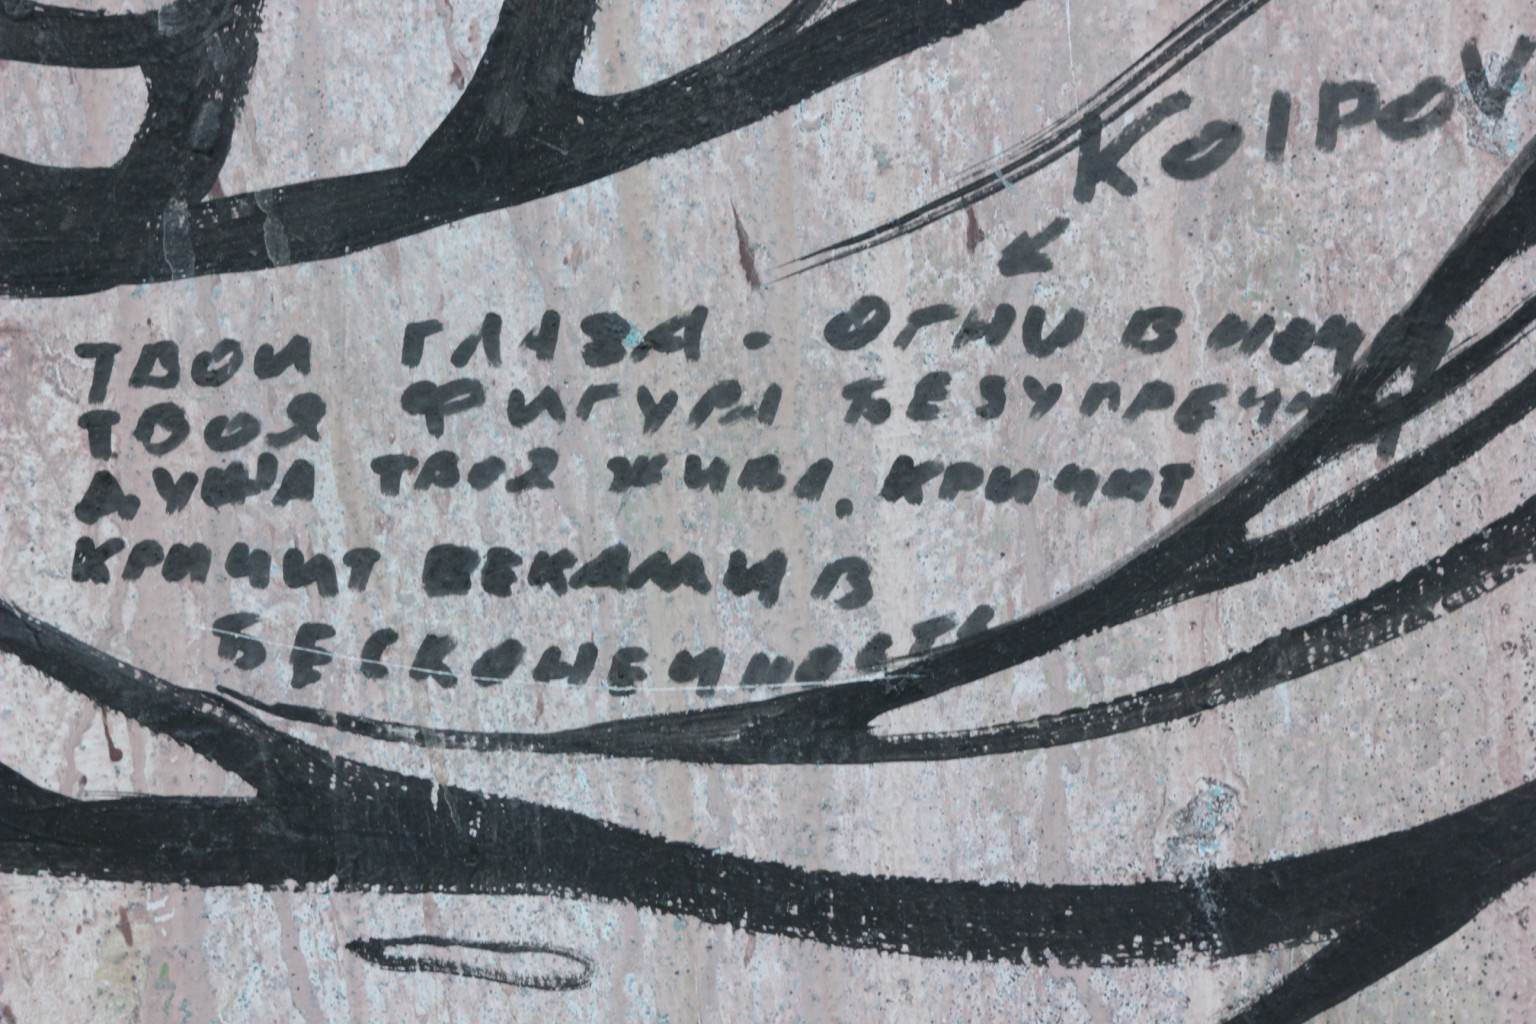 KOIPOV
ТВОИ ГЛАЗА - ОГНИ В НОЧИ
ТВОЯ ФИГУРА БЕЗУПРЕЧНА
ДУША ТВОЯ ЖИВА, КРИЧИТ
КРИЧИТ ВЕКАМИ В
БЕСКОНЕЧНОСТЬ